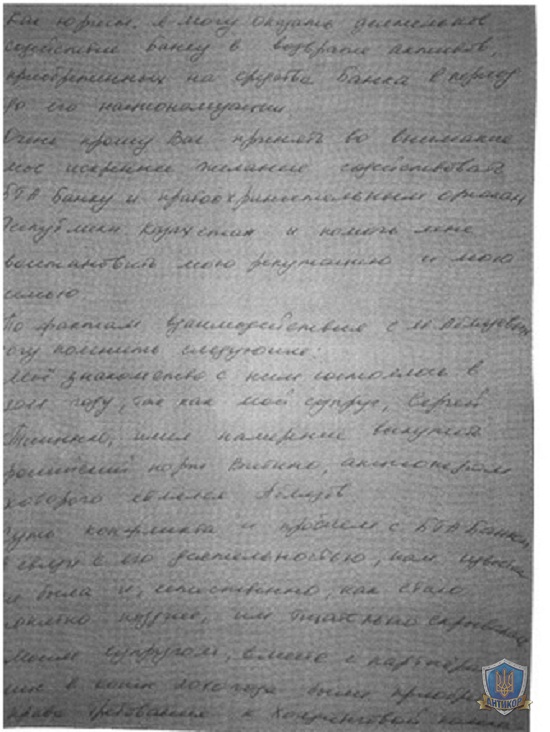 Как юрист, я могу оказать деятельное
содействие Банку в возврате активов,
приобретенных на средства Банка в период
до его национализации.
Очень прошу Вас принять во внимание
мое искреннее желание содействовать
БТА Банку и правоохранительным органам
Республики Казахстан и помочь мне
восстановить мою репутацию и мою
семью.
По фактам взаимодействия с
могу пояснить следующие:
Моё знакомство с ним состоялось в
году, так как мой супруг, Сергей
имел намерение выкупить
российский порт Витино, акционером
которого являлся Аблязов
Суть конфликта и проблем с БТА Банком
в связи с его деятельностью, нам известна
не была и, естественно, как стало
понятно позднее, им тщательно скрывалась
Моим супругом, вместе с партнёрами
в 2010 года были
права требования к
АНТИКОР